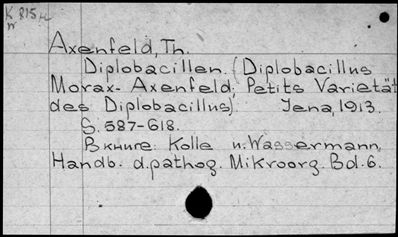 K 815
Axenfeld, Th.
Diplobacillen. (Diplobacillus
Morax-Axenfeld; Petits Varietät
des Diplobacillus). Jena, 1913.
S. 587-618.
В книге: Kolle u. Wassermann,
Handb. d. pathog. Mikroorg. Bd. 6.